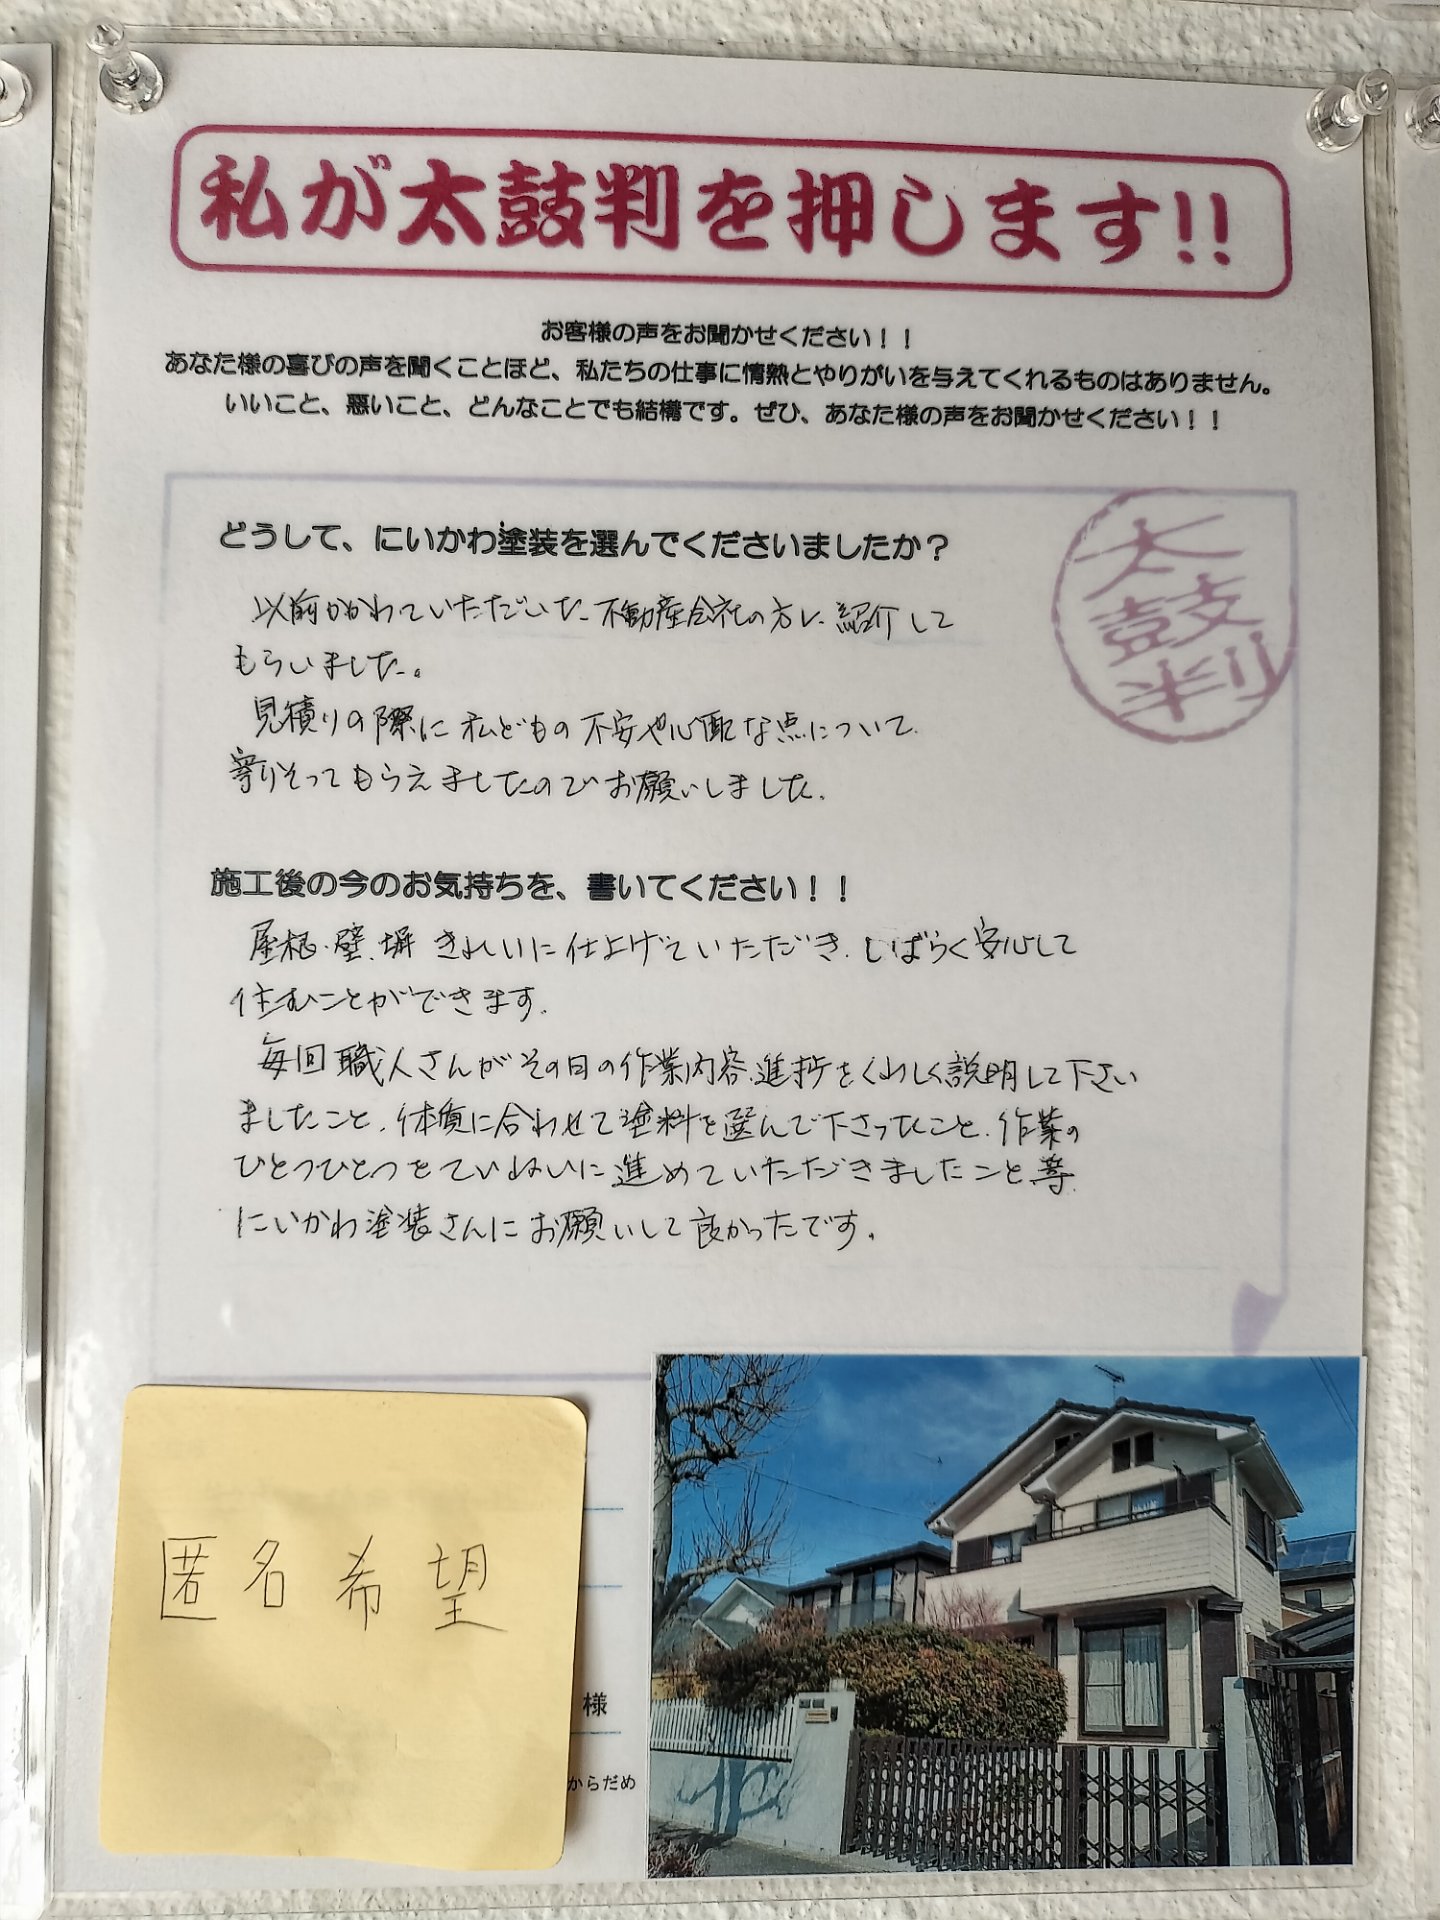 私が太鼓判を押します!!
お客様の声をお聞かせください！！
あなた様の喜びの声を聞くことほど、私たちの仕事に情熱とやりがいを与えてくれるものはありません。
いいこと、悪いこと、どんなことでも結構です。ぜひ、あなた様の声をお聞かせください！！
太鼓判
どうして、にいかわ塗装を選んでくださいましたか？
以前かかわていただいた不動産会社の方に紹介して
もらいました。
見積りの際に私どもの不安や心配な点について
寄りそってもらえましたのでお願いしました。
施工後の今のお気持ちを、書いてください！！
屋根、壁、塀 きれいに仕上げていただき、しばらく安心して
住むことができます。
毎回職人さんがその日の作業内容、進捗をくわしく説明して下さい
ましたこと、体質に合わせて塗料を選んで下さったこと、作業の
ひとつひとつをていねいに進めていただきましたこと、等
にいかわ塗装さんにお願いして良かったです。
匿名希望
様
からだめ